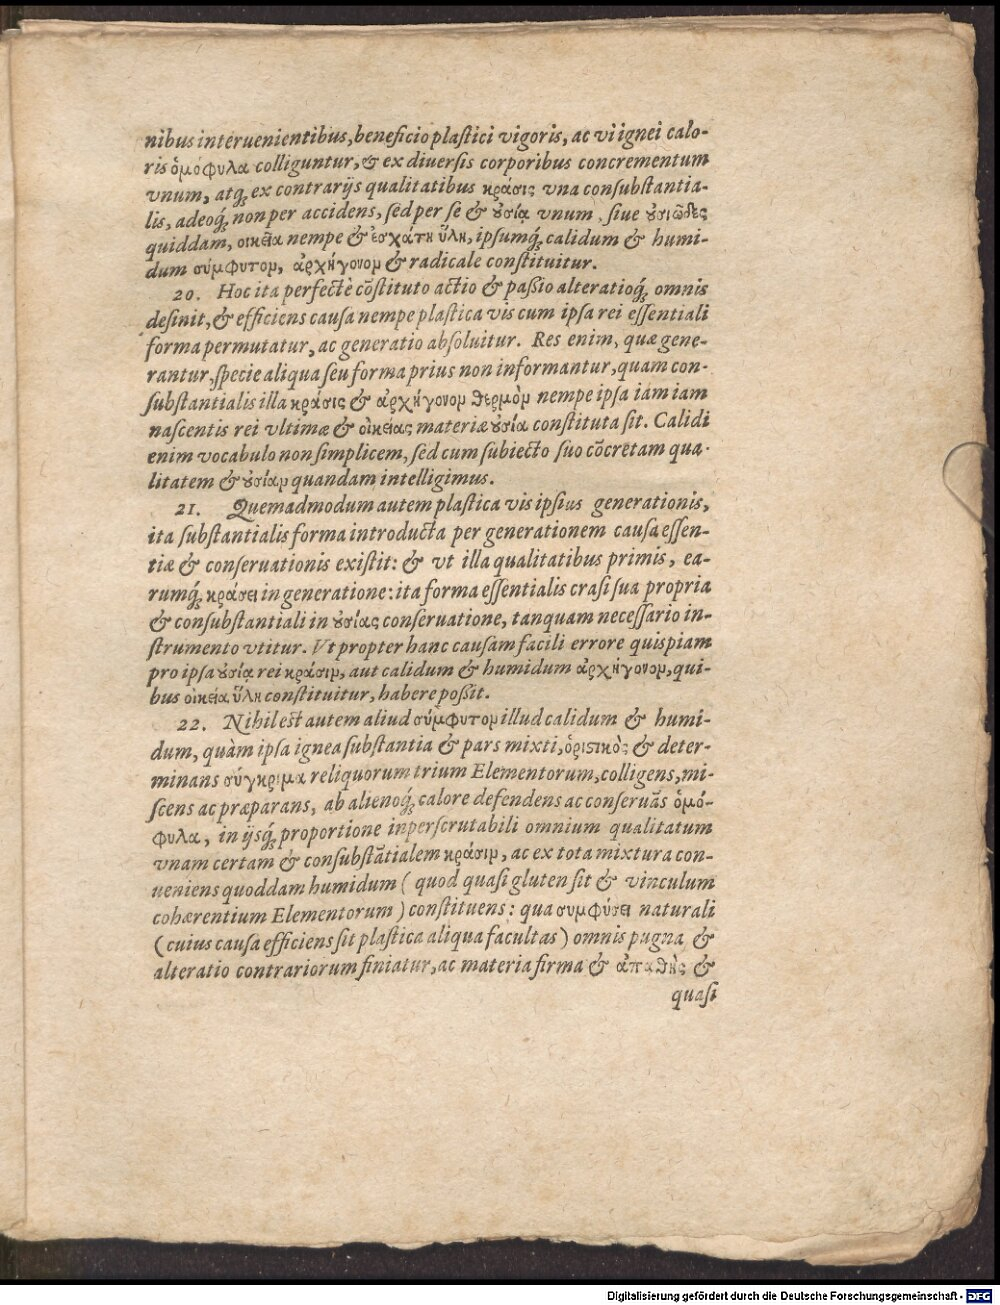 nibus interuenientibus, beneficio plastici vigoris, ac vi ignei calo-
ris ὁμόφυλα colliguntur, & ex diuersis corporibus concrementum
vnum, atq́; ex contrarijs qualitatibus κράσις vna consubstantia-
lis, adeoq́; non per accidens, sed per se & ȣ̓σίᾳ vnum, siue ȣ̓σιῶδες
quiddam, οικεῖα nempe & ἐσχάτη ὕλη, ipsumq́; calidum & humi-
dum σύμφυτομ, ἀρχήγονομ & radicale constituitur.
20. Hoc ita perfectè cōstituto actio & passio alteratioq́; omnis
desinit, & efficiens causa nempe plastica vis cum ipsa rei essentiali
forma permutatur, ac generatio absoluitur. Res enim, quæ gene-
rantur, specie aliqua seu forma prius non informantur, quam con-
substantialis illa κράσις & ἀρχήγονομ θερμὸμ nempe ipsa iam iam
nascentis rei vltimæ & οἰκείας materiæ ȣ̓σία constituta sit. Calidi
enim vocabulo non simplicem, sed cum subiecto suo cōcretam qua-
litatem & ȣ̓σίαμ quandam intelligimus.
21. Quemadmodum autem plastica vis ipsius generationis,
ita substantialis forma introducta per generationem causa essen-
tiæ & conseruationis existit: & vt illa qualitatibus primis, ea-
rumq́; κράσει in generatione: ita forma essentialis crasi sua propria
& consubstantiali in ȣ̓σίας conseruatione, tanquam necessario in-
strumento vtitur. Vt propter hanc causam facili errore quispiam
pro ipsa ȣ̓σίᾳ rei κράσιμ, aut calidum & humidum ἀρχήγονομ, qui-
bus οἰκεία ὕλη constituitur, habere possit.
22. Nihil est autem aliud σύμφυτομ illud calidum & humi-
dum, quàm ipsa ignea substantia & pars mixti, ὁριστικὸς & deter-
minans σύγκριμα reliquorum trium Elementorum, colligens, mi-
scens ac præparans, ab alienoq́; calore defendens ac conseruās ὁμό-
φυλα, in ijsq́; proportione inperscrutabili omnium qualitatum
vnam certam & consubstātialem κράσιμ, ac ex tota mixtura con-
ueniens quoddam humidum ( quod quasi gluten sit & vinculum
cohærentium Elementorum ) constituens: qua συμφύσει naturali
( cuius causa efficiens sit plastica aliqua facultas ) omnis pugna &
alteratio contrariorum finiatur, ac materia firma & ἀπαθὴς &
quasi
Digitalisierung gefördert durch die Deutsche Forschungsgemeinschaft - DFG